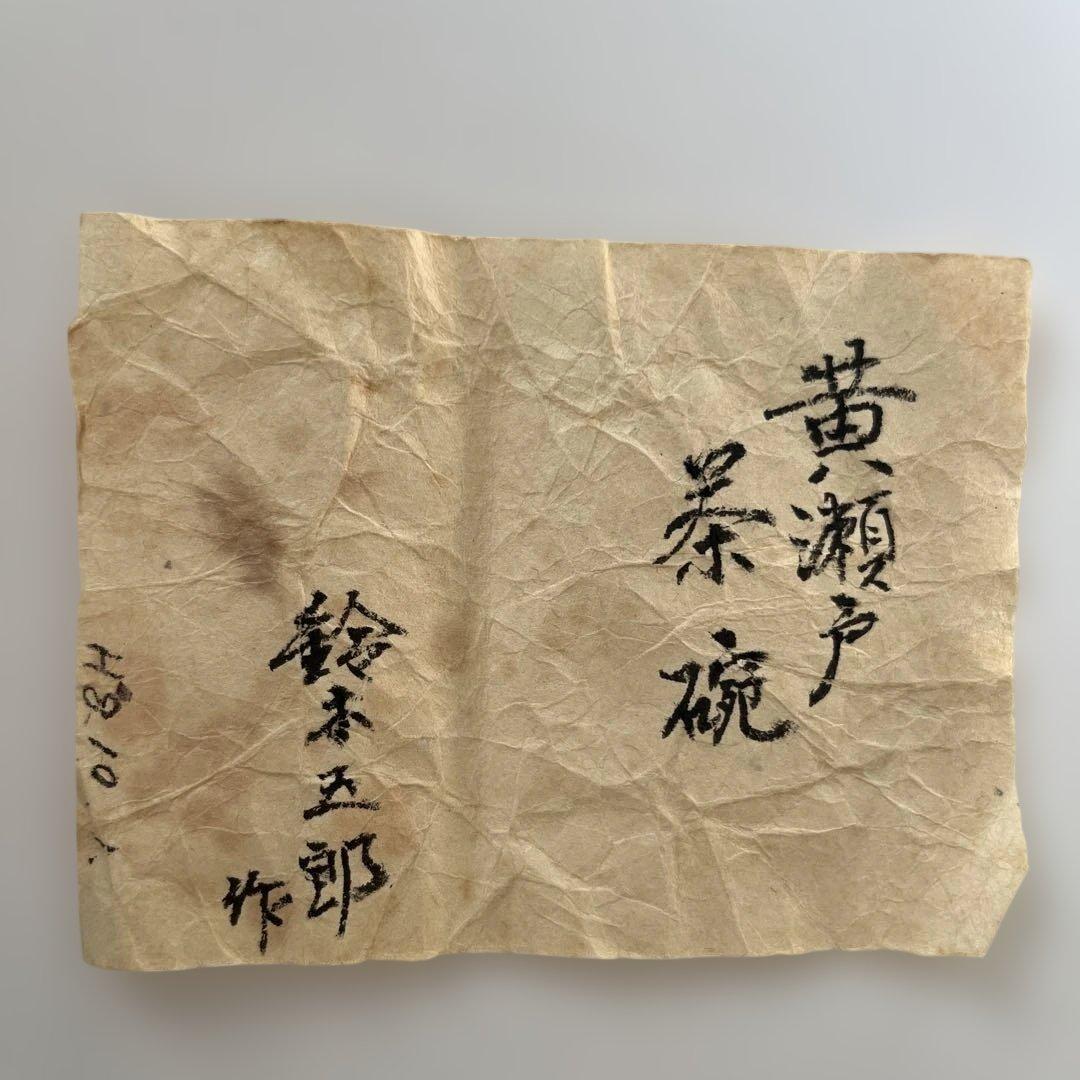 黄瀬戸
茶碗
鈴木五郎
作
H8.10